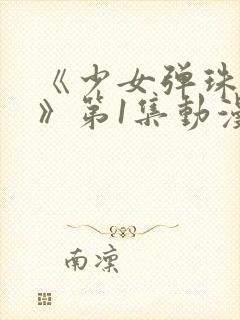 《少女弹珠
》第1集動漫
南凛